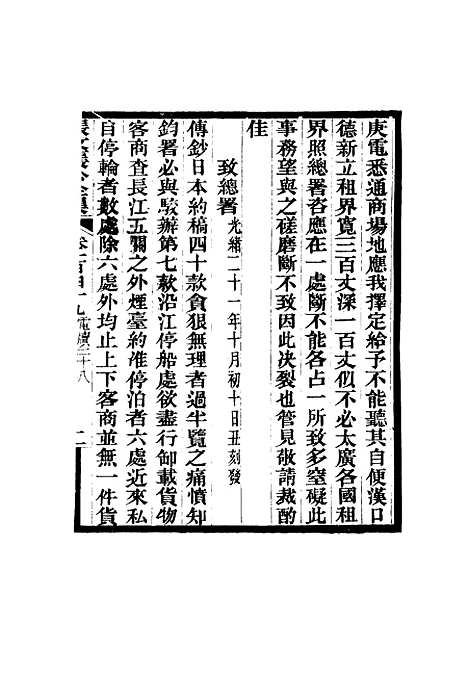 庚電悉通商場地應我擇定給予不能聽其自便漢口
德新立租界寬三百丈深一百丈似不必太廣各國租
界照總署咨應在一處斷不能各占一所致多窒礙此
事務望與之磋磨斷不致因此决裂也管見敬請裁酌
佳
致總署光緒二十一年十月初十日丑刻發
傅鈔日本約稿四十款貪狠無理者過半覽之痛憤知
鈞署必與駮辦第七款沿江停船處欲盡行卸載貨物
客商查長江五關之外煙臺約准停泊者六處近來私
自停輪者數處除六處外均止上下客商並無一件貨
卷一百四十九電牘二十八